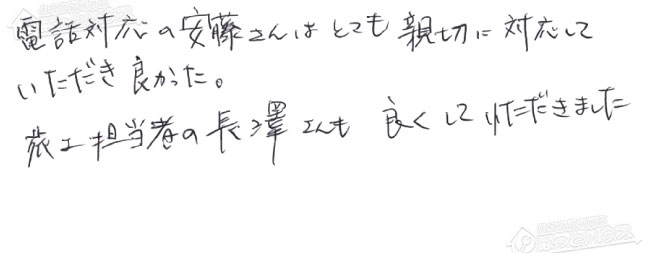 電話対応の安藤さんはとても親切に対応して
いただき良かった。
施工担当者の長澤さんも良くしていただきました